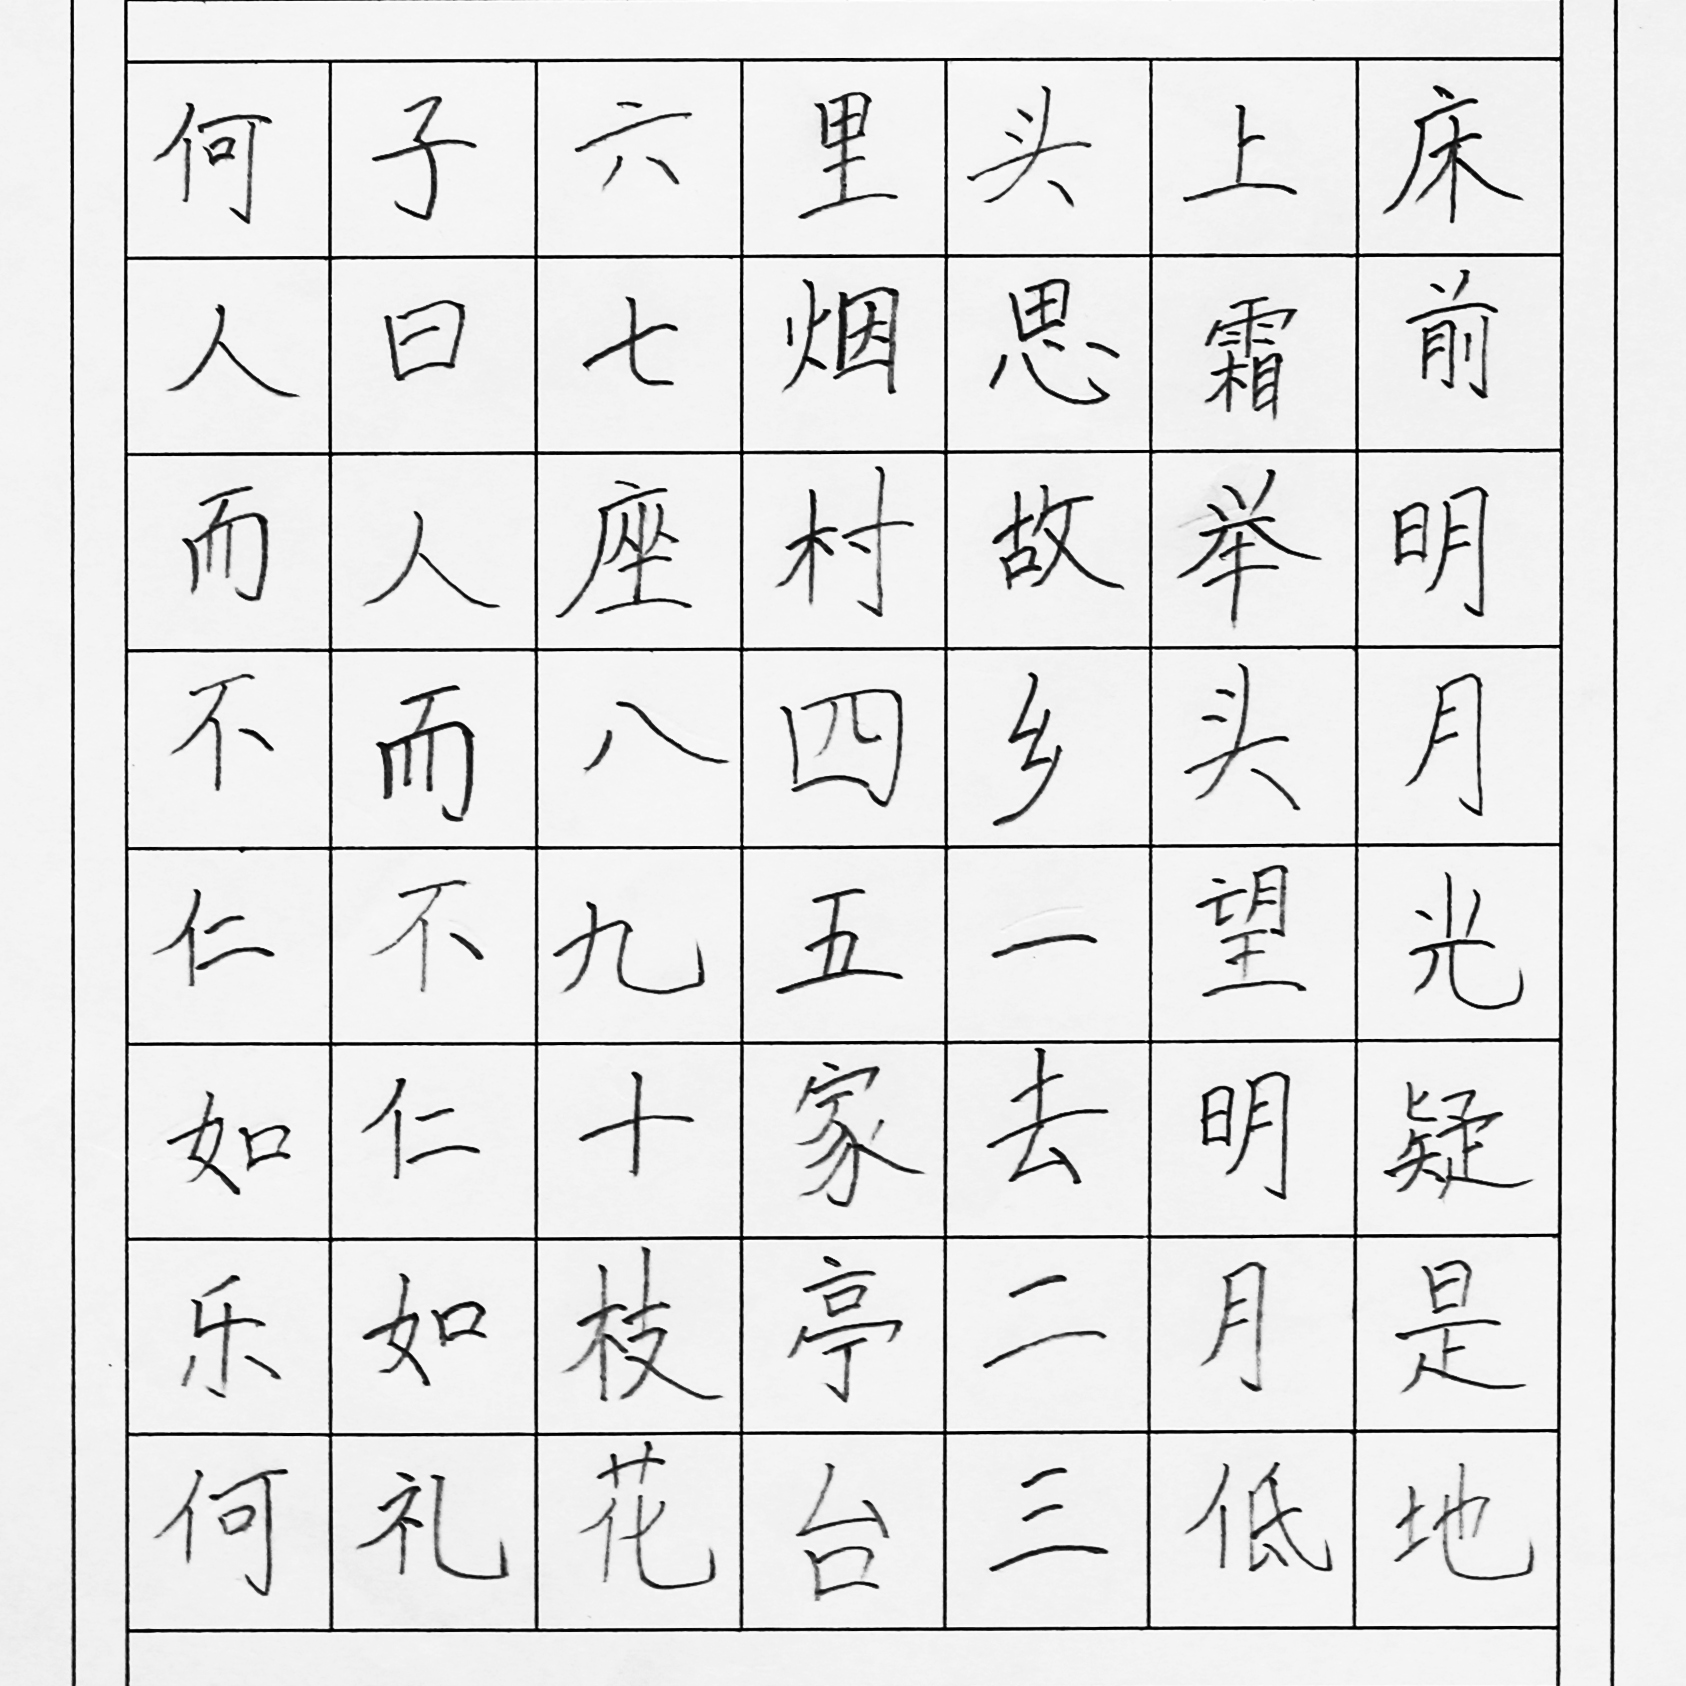 床前明月光疑是地
上霜举头望明月低
头思故乡一去二三
里烟村四五家亭台
六七座八九十枝花
子曰人而不仁如礼
何人而不仁如乐何